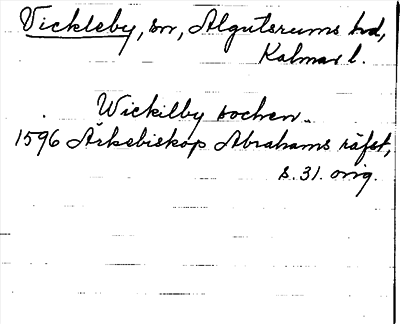 Vickleby, sn, Algutsrums hd,
Kalmar l.
Wickilby sochen.
1596 Ärkebiskop Abrahams räfst,
s. 31. orig.